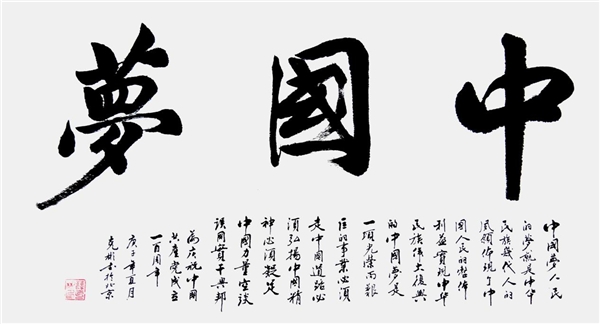 中國夢
中國夢人民
的夢就是中華
民族幾代人的
夙願体現了中
國人民的整体
利益實現中華
民族偉大復興
的中國夢是
一項光榮而艱
巨的事業必須
走中國道路必
須弘揚中國精
神必須凝
中國力量空談
誤國實干興邦
為庆祝中國
共產党成立
一百周年
庚子年夏月
克彬書於北京